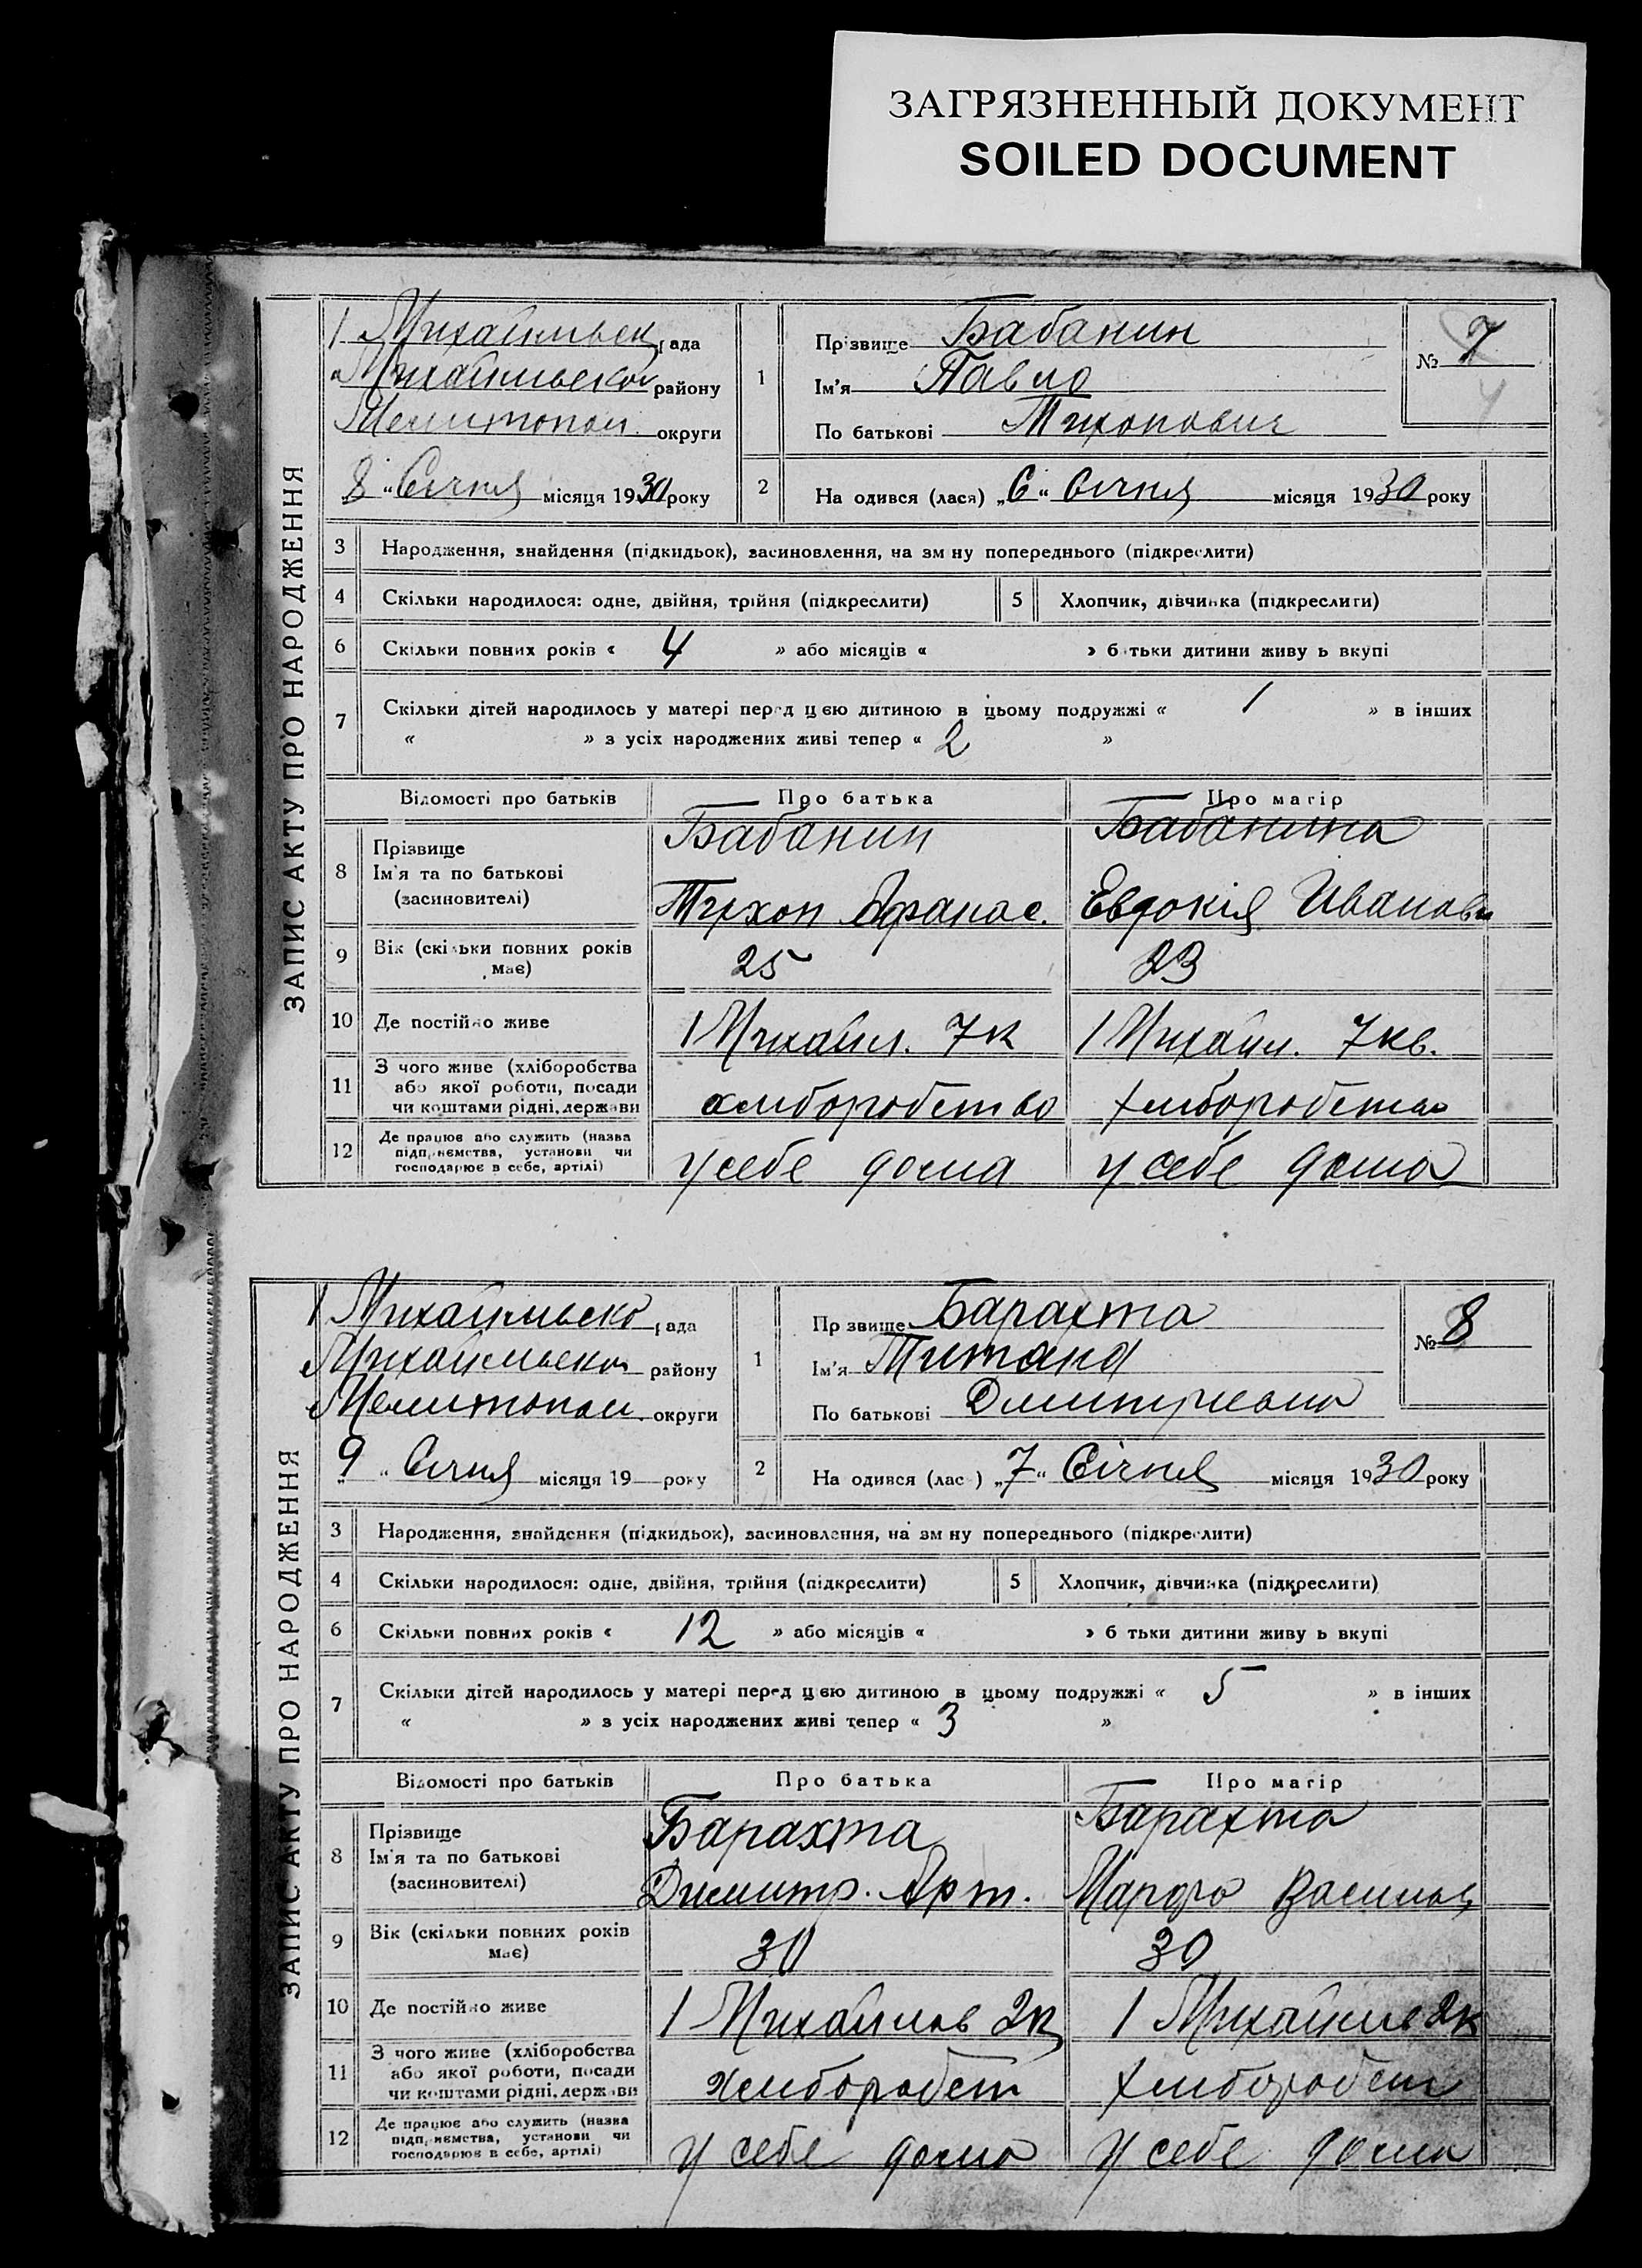 ЗАГРЯЗНЕННЫЙ ДОКУМЕНТ
SOILED DOCUMENT
ЗАПИС АКТУ ПРО НАРОДЖЕННЯ
1 Михайлівськ рада
Михайлівськ району
Мелитопол. округи
8 " Січня місяця 1930 року
1
Прізвище Бабанин
Ім'я Павло
По батькові Тихонович
№ 7
4
2
На одився (лася) „6“ Січня місяця 1930 року
3 Народження, знайдення (підкидьок), засиновлення, на зм ну попереднього (підкреслити)
4 Скільки народилося: одне, двійня, трійня (підкреслити) 5 Хлопчик, дівчинка (підкреслити)
6 Скільки повних років « 4 » або місяців « » б тьки дитини живу ь вкупі
7 Скільки дітей народилось у матері перед цею дитиною в цьому подружжі « 1 » в інших
« » з усіх народжених живі тепер « 2 »
Відомості про батьків Про батька Про матір
8 Прізвище
Ім'я та по батькові
(засиновителі)
Бабанин Бабанина
Тихон Афанас. Евдокія Ивановн
9 Вік (скільки повних років має) 25 23
10 Де постійно живе 1 Михайл. 7к 1 Михайл. 7кв.
11 З чого живе (хліборобства
або якої роботи, посади
чи коштами рідні, держави
хлиборобство хлиборобство
12 Де працює або служить (назва
підприємства, установи чи
господарює в себе, артілі)
у себе дома у себе дома
ЗАПИС АКТУ ПРО НАРОДЖЕННЯ
1 Михайлвсько рада
Михайлвсько району
Мелитопол. округи
„9 “ Січня місяця 19 року
1
Пр звище Барахта
Ім'я Титана
По батькові Дмитриевна
№ 8
2
На одився (лас ) „7“ Січня місяця 1930 року
3 Народження, знайдення (підкидьок), засиновлення, на зм ну попереднього (підкреслити)
4 Скільки народилося: одне, двійня, трійня (підкреслити) 5 Хлопчик, дівчинка (підкреслити)
6 Скільки повних років « 12 » або місяців « » б тьки дитини живу ь вкупі
7 Скільки дітей народилось у матері перед цею дитиною в цьому подружжі « 5 » в інших
« » з усіх народжених живі тепер « 3 »
Відомості про батьків Про батька Про матір
8 Прізвище
Ім'я та по батькові
(засиновителі)
Барахта Барахта
Димитр. Арт. Васильв
9 Вік (скільки повних років має) 30 30
10 Де постійно живе 1 Михайлов 2к 1 Михайлив 2к
11 З чого живе (хліборобства
або якої роботи, посади
чи коштами рідні, держави
хлиборобст хлиборобст
12 Де працює або служить (назва
підприємства, установи чи
господарює в себе, артілі)
у себе дома у себе дома